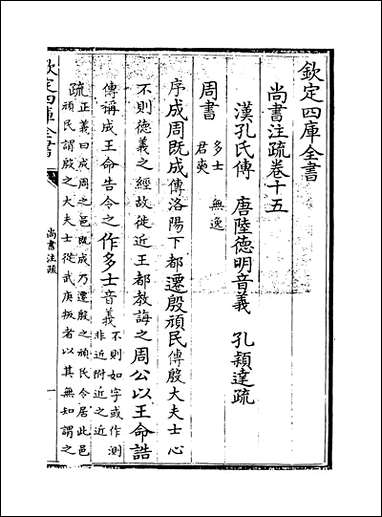 欽定四庫全書
尚書注疏卷十五
漢孔氏傳　唐陸德明音義　孔穎達疏
周書
多士　無逸
君奭
序成周既成傳洛陽下都遷殷頑民傳殷大夫士心
不則德義之經故徙近王都教誨之周公以王命誥
傳稱成王命告令之作多士音義不則如字或作測
非近附近之近
疏正義曰成周之邑既成乃遷殷之頑民令居此邑
頑民謂殷之大夫士從武庚叛者以其無知謂之
欽定四庫全書
尚書注疏
一